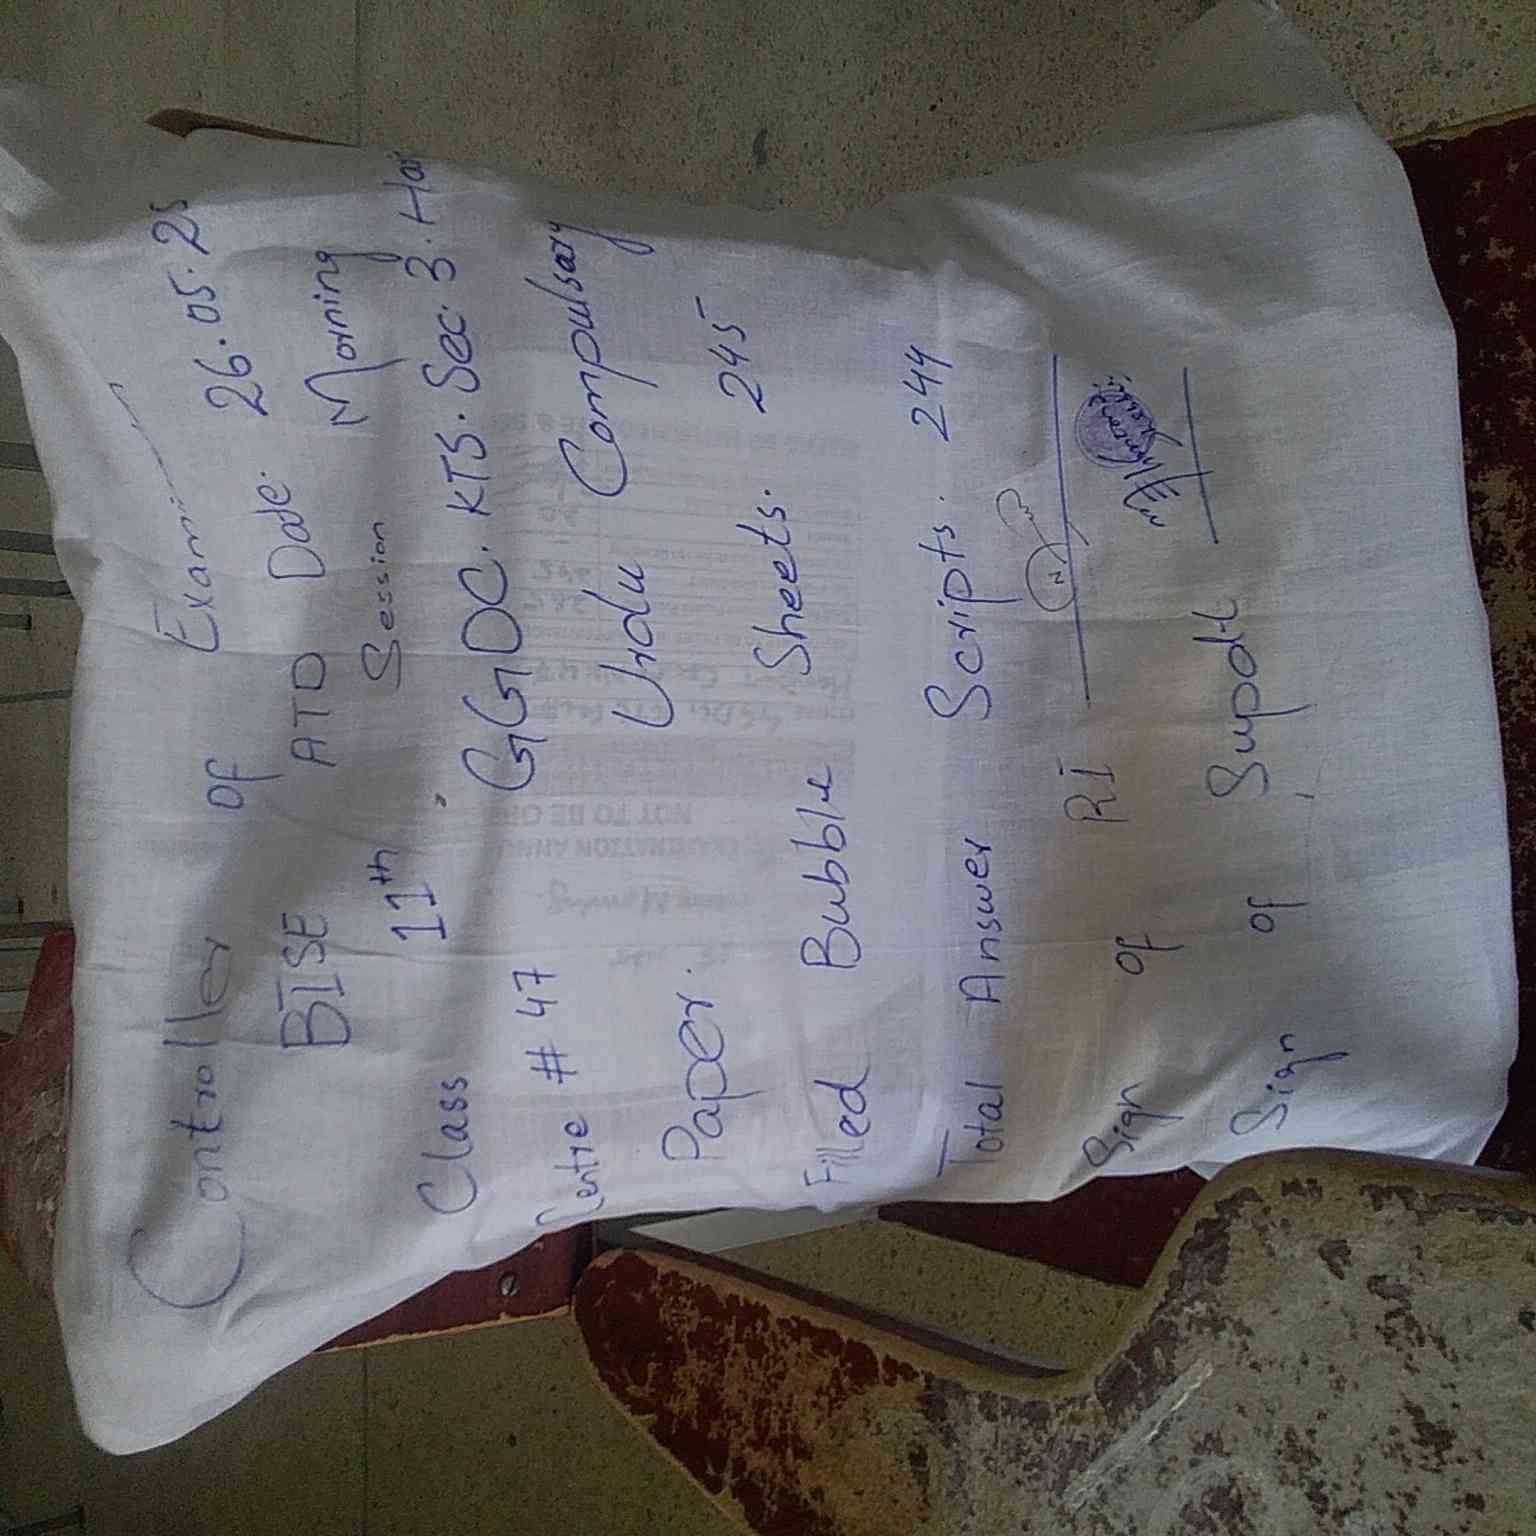 Controller of Examin
BISE ATD Date: 26.05.25
Class 11th Session Morning
Centre # 47 GGDC. KTS. Sec. 3. Hari
Paper. Urdu Compulsary
Filled Bubble Sheets. 245
Total Answer Scripts. 244
Sign of RI
Sign of Supdt